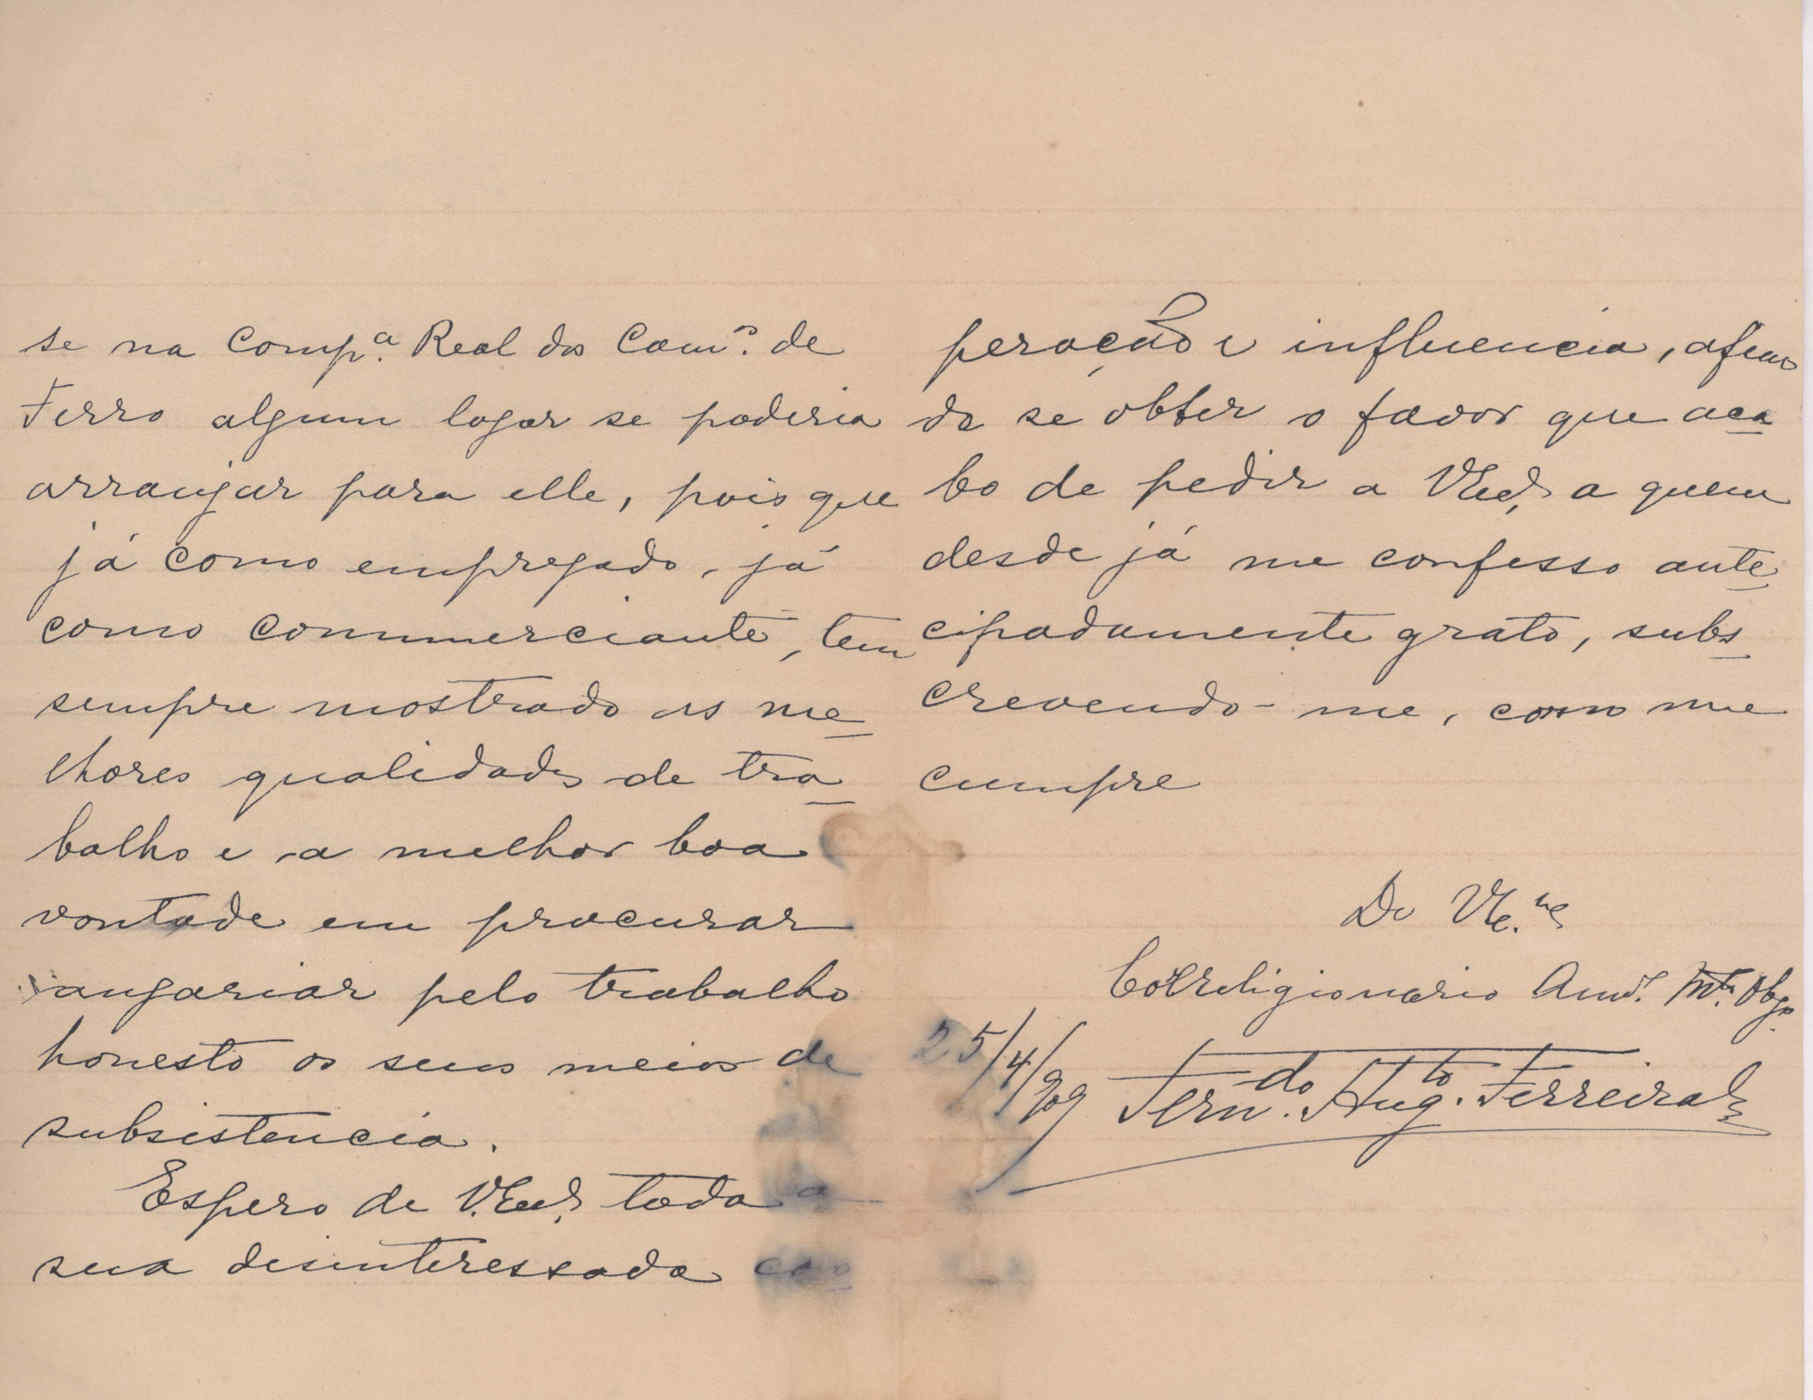 se na Comp.ª Real dos Cam.os de
Ferro algum logar se poderia
arranjar para elle, pois que
já como empregado, já
como commerciante, tem
sempre mostrado as me-
lhores qualidades de tra-
balho e a melhor boa
vontade em procurar
angariar pelo trabalho
honesto os seus meios de
subsistencia.
Espero de V. Ex.ª toda a
sua desinteressada coo-
peração e influencia, afim
de se obter o favor que aca-
bo de pedir a V. Ex.ª, a quem
desde já me confesso ante-
cipadamente grato, subs-
crevendo-me, como me
cumpre
De V.
Correligionario Am.º Mt.º Obg.º
25/4/909 Fern.do Aug.to Ferreira